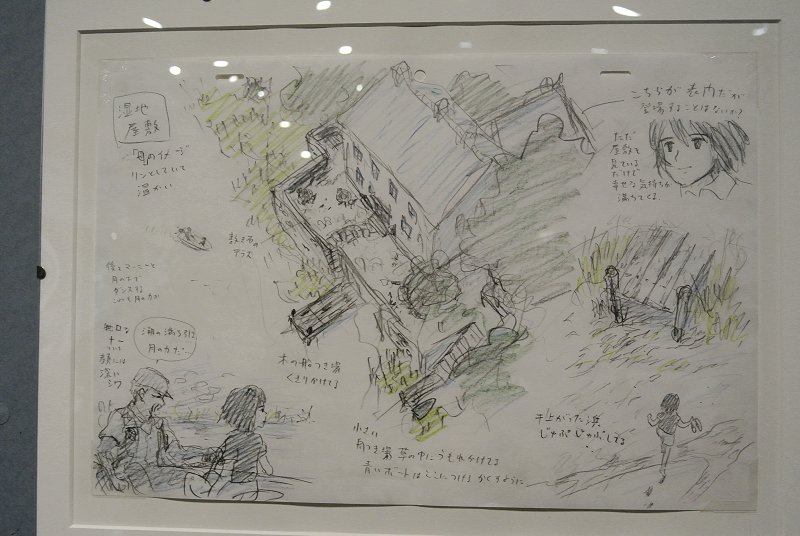 湿地
屋敷
リンとしていて
温かい
敷き石の
テラス
後でマーニーと
月の下で
ダンスする
これも月の力か
無口な
ナー
ていう
顔には
深い
シワ
潮の満ち引きは
月の力だ…
木の船つき場
くさりかけてる
小さい
舟つき場 草の中にうもれかけてる
青いボートはここにつける かくすように
こちらが表門だが
登場することはないか?
ただ
屋敷を
見ている
だけで
幸せな気持ちが
満ちてくる
干上がった浜
じゃぶじゃぶしてる